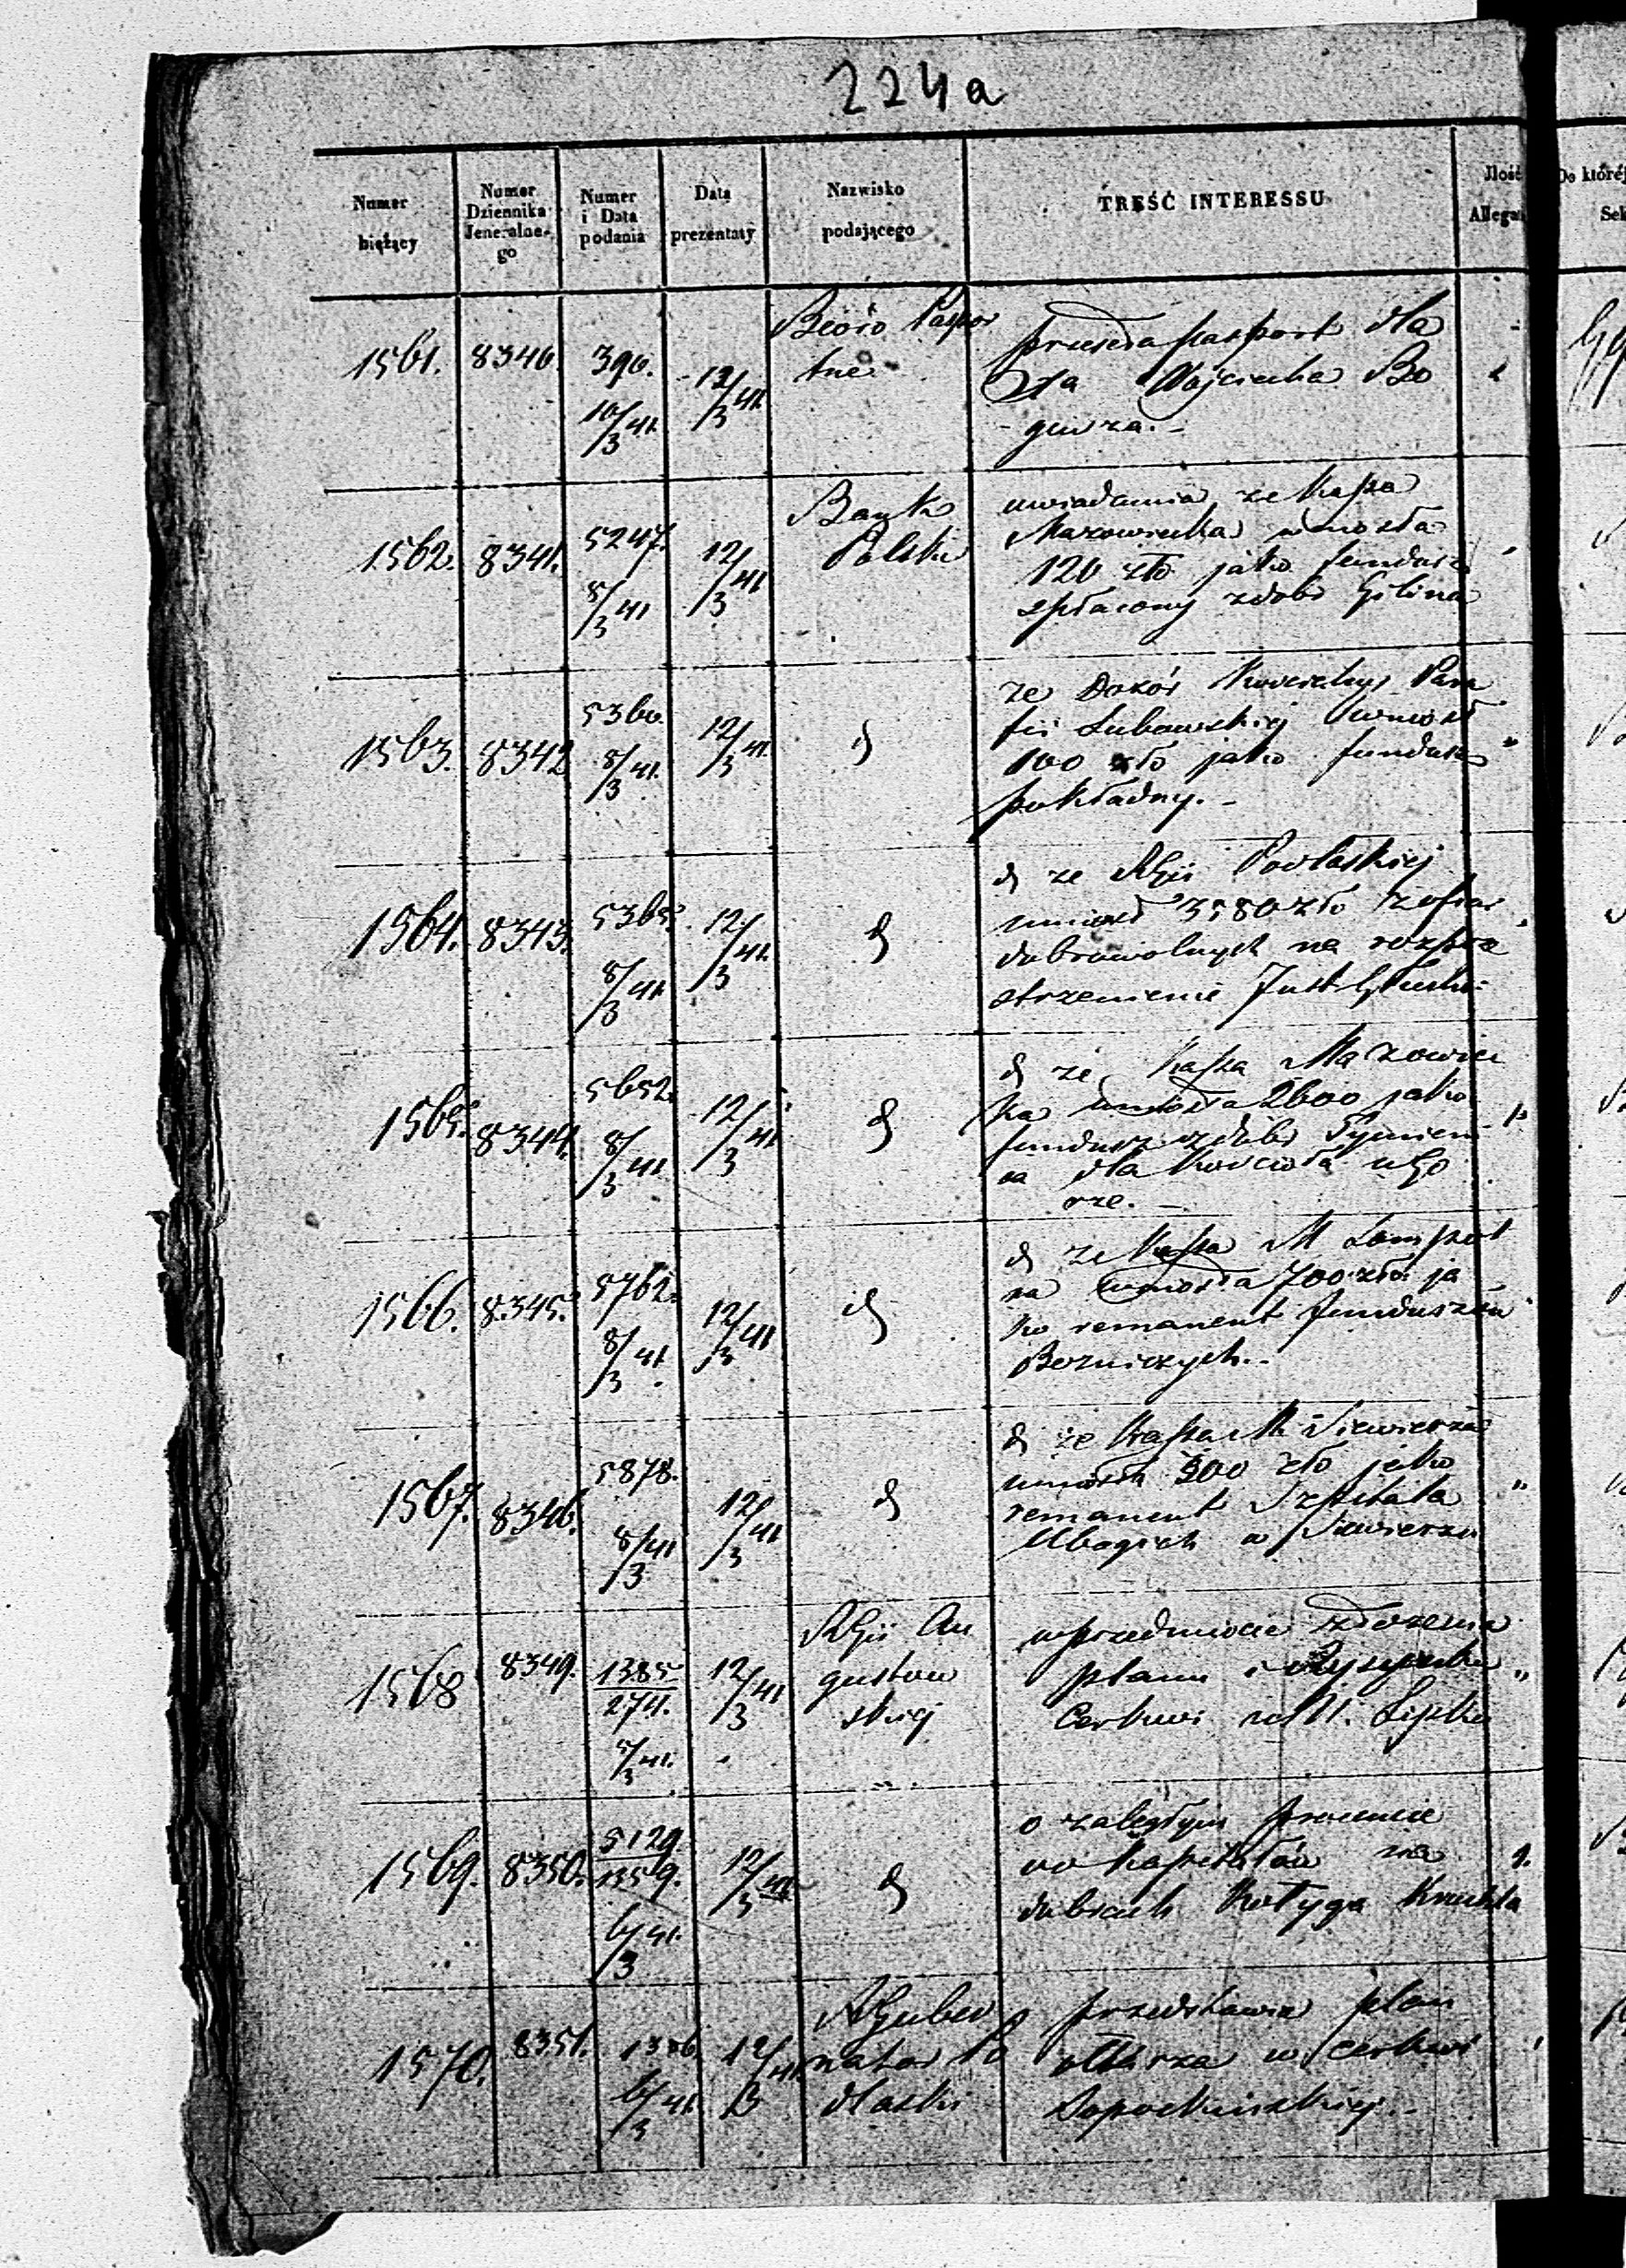 224a
Numer bieżący
Numer Dziennika Jeneralnego
Numer i Data podania
Data prezentaty
Nazwisko podającego
TREŚĆ INTERESSU
Ilość
Do której
1561. 8340. 390. 10/3 41. 12/3 41. Bióro Paspor
tne
przeseła passport dla
Xa Wojciecha Bo
1562. 8341. 5247. 5/3 41 12/3 41 Bank
Polski
uwiadamia ze Kassa
Mazowiecka wniosła
120 zło jako fundusz
spłacony z dobr
1563. 8342 5360. 8/3 41. 12/3 41.
ze Dozór Kościelny Para
fii Lubowskiej wniosł
100 zło jako fundusz
pokładny.
1564. 8343. 5365. 8/3 41 12/3 41.
d ze RGii Podlaskiej
wniosł 3580 zło z ofiar
dobrowolnych na rozprze
strzenienie
1565. 8344. 5652. 8/3 41 12/3 41
d ze Kassa Mazowiec
ka wniosła 2600 jako
fundusz z dobr Tymieni
ca dla Kościoła w Go
rze.
1566. 8345. 5762. 8/3 41. 12/3 41
d ze Kassa M
wniosła 700 zło ja
ko remanent funduszów
Bozniczych.
1567. 8346. 5878. 8/3 41 12/3 41
d ze Kassa M Siewierza
wniosła 300 zło jako
remanent Szpitala
Ubogich w Siewierzu
1568 8349. 1385/274. 5/3 41. 12/3 41 RGii Au
gustow
skiej
w przedmiocie złożenia
planu i
Cerkwi w M. Lipsku
1569. 8350. 5129./1359. 6/3 41. 12/3 41
o zaległym procencie
od kapitałów na
dobrach Kotyga
1570. 8351. 1386. 6/3 41. 12/3 41. RGuber
nator Po
dlaski
przedstawia plan
ołtarza w cerkwi
Sopockinskiej.